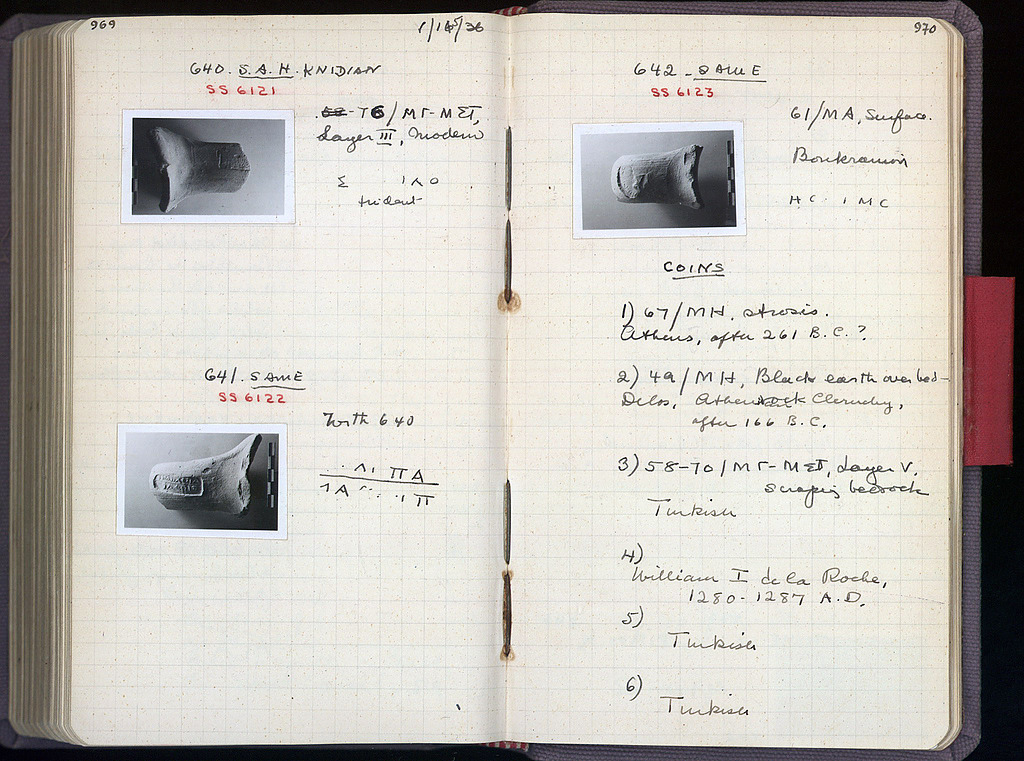 969
1/15/36
640. S.A.H. KNIDIAN
SS 6121
-76/ΜΓ-ΜΣΤ,
Layer III, Modern
Σ ΙΛΟ
trident
641. SAME
SS 6122
With 640
ΠΑ
Π
970
642. SAME
SS 6123
61/ΜΑ, Surface.
Boukranion
HC I MC
COINS
1) 67/ΜΗ, strosis.
Athens, after 261 B.C.?
2) 49/ΜΗ, Black earth over bed-
Delos, Athenian Cleruchy, rock
after 166 B.C.
3) 58-70/ΜΓ-ΜΣΤ, Layer V.
scraping bedrock
Turkish
4)
William I de la Roche,
1280-1287 A.D.
5)
Turkish
6)
Turkish